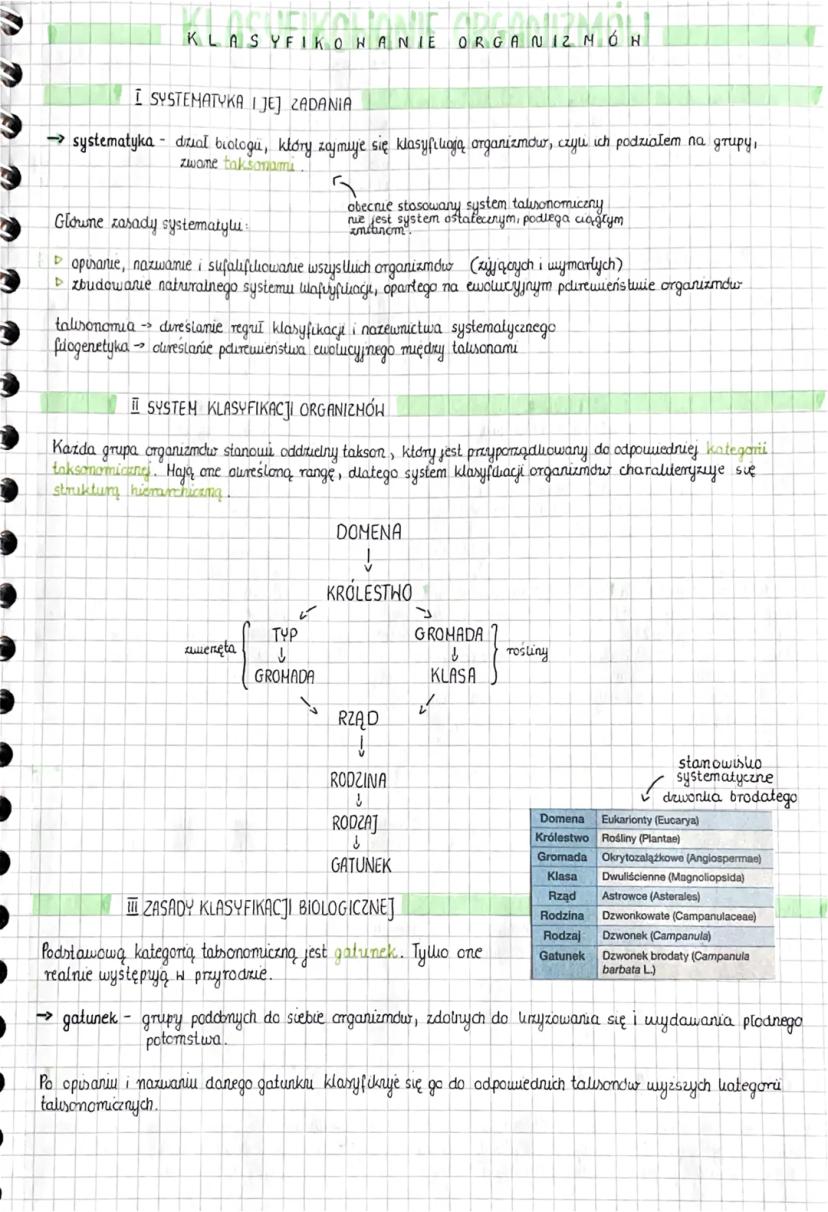 KLASYFIKOWANIE ORGANIZMÓW
KLASYFIKOWANIE ORGANIZMÓW
I SYSTEMATYKA I JEJ ZADANIA
→ systematyka - dział biologii, który zajmuje się klasyfikacją organizmów, czyli ich podziałem na grupy,
zwane taksonami.
obecnie stosowany system taksonomiczny
nie jest system ostatecznym, podlega ciągłym
zmianom.
Główne zasady systematyki:
▷ opisanie, nazwanie i sklasyfikowanie wszystkich organizmów (żyjących i wymarłych)
▷ zbudowanie naturalnego systemu klasyfikacji, opartego na ewolucyjnym pokrewieństwie organizmów
taksonomia → określanie reguł klasyfikacji i nazewnictwa systematycznego
filogenetyka → określanie pokrewieństwa ewolucyjnego między taksonami
II SYSTEM KLASYFIKACJI ORGANIZMÓW
Każda grupa organizmów stanowi oddzielny takson, który jest przyporządkowany do odpowiedniej kategorii
taksonomicznej. Mają one określoną rangę, dlatego system klasyfikacji organizmów charakteryzuje się
strukturą hierarchiczną.
DOMENA
↓
KRÓLESTWO
↙ ↘
TYP GROMADA
zwierzęta ↓ ↓ rośliny
GROMADA KLASA
↘ ↙
RZĄD
↓
RODZINA
↓
RODZAJ
↓
GATUNEK
stanowisko
systematyczne
dzwonka brodatego
Domena Eukarionty (Eucarya)
Królestwo Rośliny (Plantae)
Gromada Okrytozalążkowe (Angiospermae)
Klasa Dwuliścienne (Magnoliopsida)
Rząd Astrowce (Asterales)
Rodzina Dzwonkowate (Campanulaceae)
Rodzaj Dzwonek (Campanula)
Gatunek Dzwonek brodaty (Campanula
barbata L.)
III ZASADY KLASYFIKACJI BIOLOGICZNEJ
Podstawową kategorią taksonomiczną jest gatunek. Tylko one
realnie występują w przyrodzie.
→ gatunek - grupy podobnych do siebie organizmów, zdolnych do krzyżowania się i wydawania płodnego
potomstwa.
Po opisaniu i nazwaniu danego gatunku klasyfikuje się go do odpowiednich taksonów wyższych kategorii
taksonomicznych.